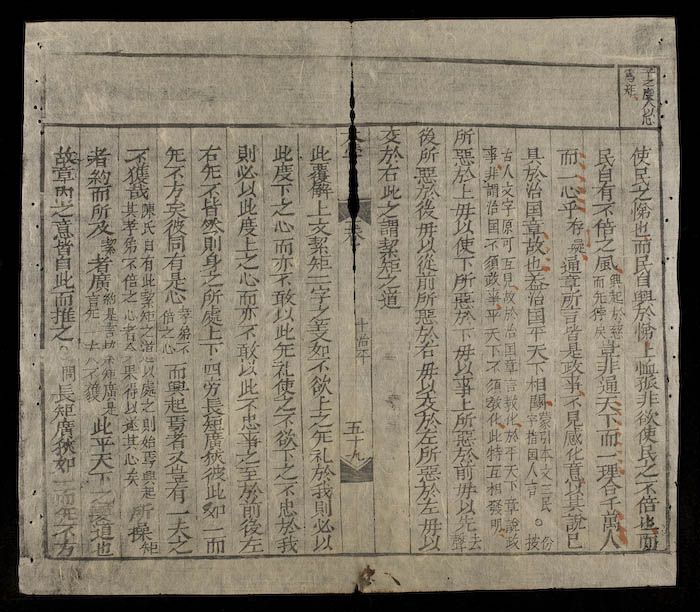 使民之悌也而民自興於悌上恤孤非欲使民之不倍也而
民自有不倍之風興起於慈豈非通天下而一理合千萬人
而一心乎存疑通章所言皆是政事不見感化意但其說已
具於治国章故也盖治国平天下相關蒙引本文三民字指国人言○按
古人文字原可互見故於治国章言教化於平天下章說政
事非謂治国不須政事平天下不須教化此特互相發明去聲
所惡於上毋以使下所惡於下毋以事上所惡於前毋以先
後所惡於後毋以從前所惡於右毋以交於左所惡於左毋以
交於右此之謂絜矩之道
十治平
五十九
此覆解上文絜矩二字之義如不欲上之无礼於我則必以
此度下之心而亦不敢以此无礼使之不欲下之不忠於我
則必以此度上之心而亦不敢以此不忠事之至於前後左
右无不皆然則身之所處上下四方長短廣狹彼此如一而
无不方矣彼同有是心孝弟不倍之心而興起焉者又豈有一夫之
不獲哉陳氏自有此絜矩之道以處之則始焉興起其孝弟不倍之心者今果得以遂其心矣所操矩
者約而所及絜者廣此平天下之要道也
故章内之意皆自此而推之問長短廣狹如一而无不方